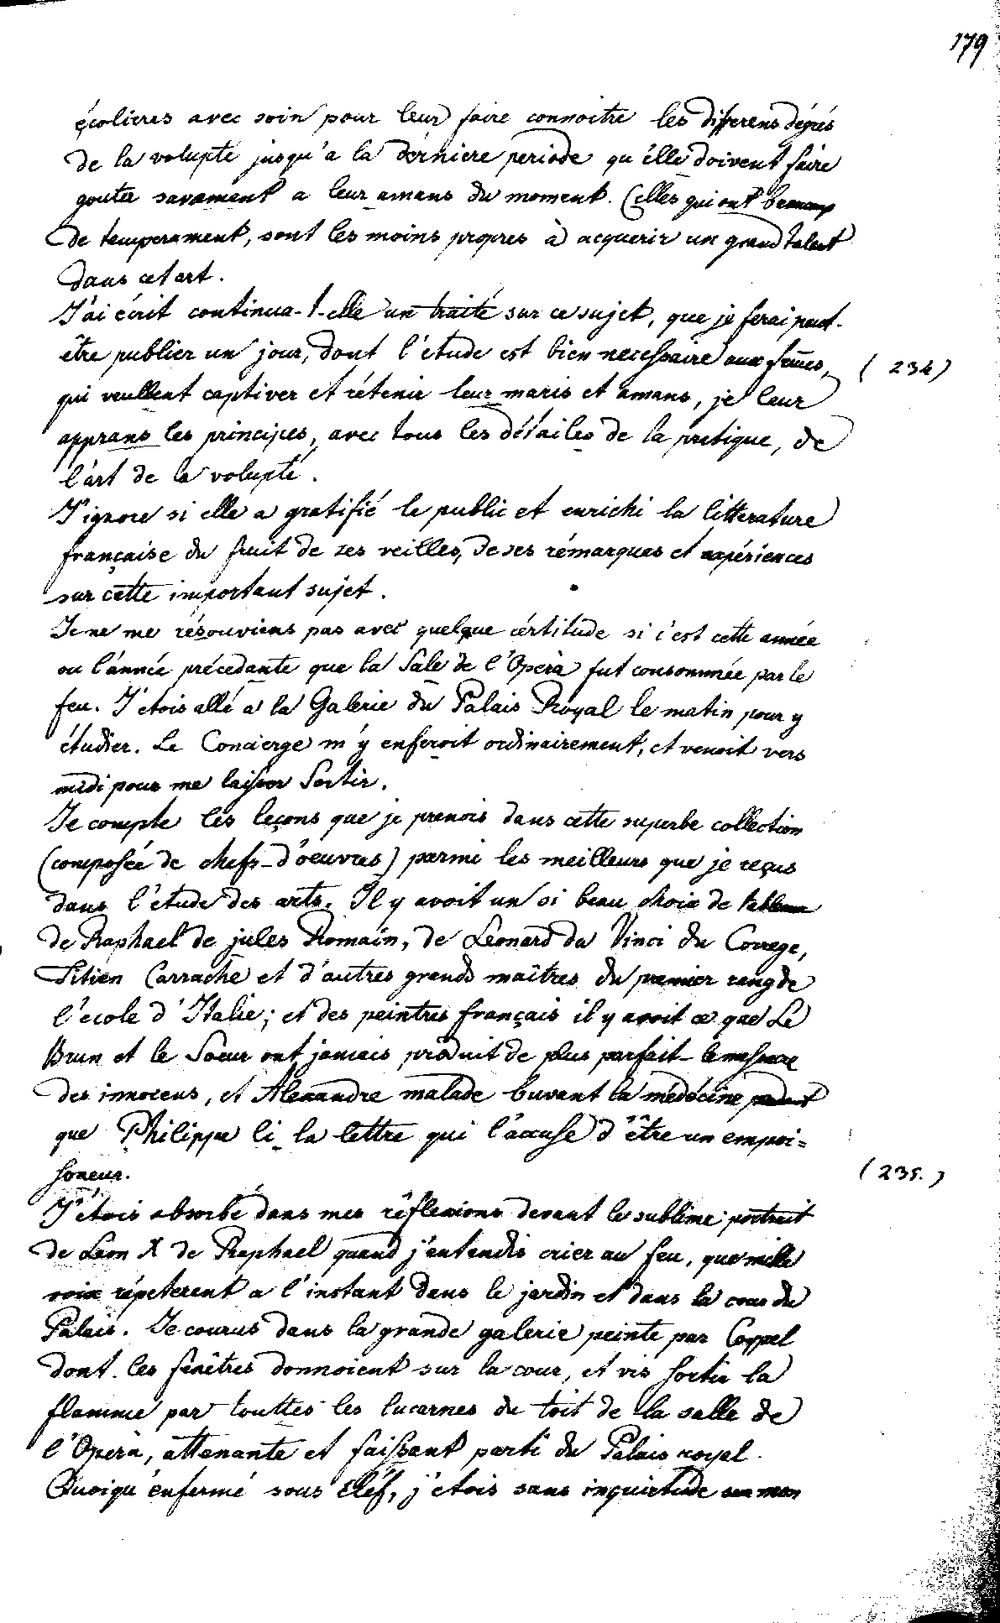 179
écolieres avec soin pour leur faire connoitre les differens dégrés
de la volupté jusqu'a la dérniere periode qu'élle doivent faire
gouter savament a leur amans du moment. Celles qui ont beaucoup
de temperament, sont les moins propres à acquerir un grand talent
dans cet art.
J'ai écrit continua-t-elle un traité sur ce sujet, que je ferai peut-
être publier un jour, dont l'étude est bien necessaire aux fem̄es,
(234)
qui veullent captiver et rétenir leur maris et amans, je leur
apprans les principes, avec tous les détailes de la pratique, de
l'art de la volupté.
J'ignore si elle a gratifié le public et enrichi la litterature
française du fruit de ses veilles, de ses rémarques et expériences
sur cette important sujet.
Je ne me résouviens pas avec quelque cértitude si c'est cette année
ou l'année précedante que la Sale de l'Opera fut consommée par le
feu. J'etois allé a la Galerie du Palais Royal le matin pour y
étudier. Le Concierge m'y enferoit ordinairement, et venoit vers
midi pour me laisser Sortir.
Je compte les leçons que je prenois dans cette superbe collection
(composée de chefs-d'oeuvres) parmi les meilleurs que je reçus
dans l'étude des arts. Il y avoit un si beau choix de tableaux
de Raphael de jules Romain, de Leonard da Vinci du Correge,
Titien Carrache et d'autres grands maîtres du premier rang de
l'école d'Italie; et des peintres français il y avoit ce que Le
Brun et le Soeur ont jamais produit de plus parfait le massacre
des innocens, et Alexandre malade buvant la médécine pendant
que Philippe li la lettre qui l'accuse d'être un empoi=
soneur.
(235.)
J'étois absorbé dans mes réflexions devant le sublime portrait
de Leon X de Raphael quand j'entendis crier au feu, que mille
voix répeterent a l'instant dans le jardin et dans la cour du
Palais. Je courus dans la grande galerie peinte par Coypel
dont les fenêtres donnoient sur la cour, et vis sortir la
flamme par touttes les lucarnes du toit de la salle de
l'Opera, attenante et faissant parti du Palais royal.
Quoiqu'énfermé sous cléf, j'etois sans inquietude sur mon